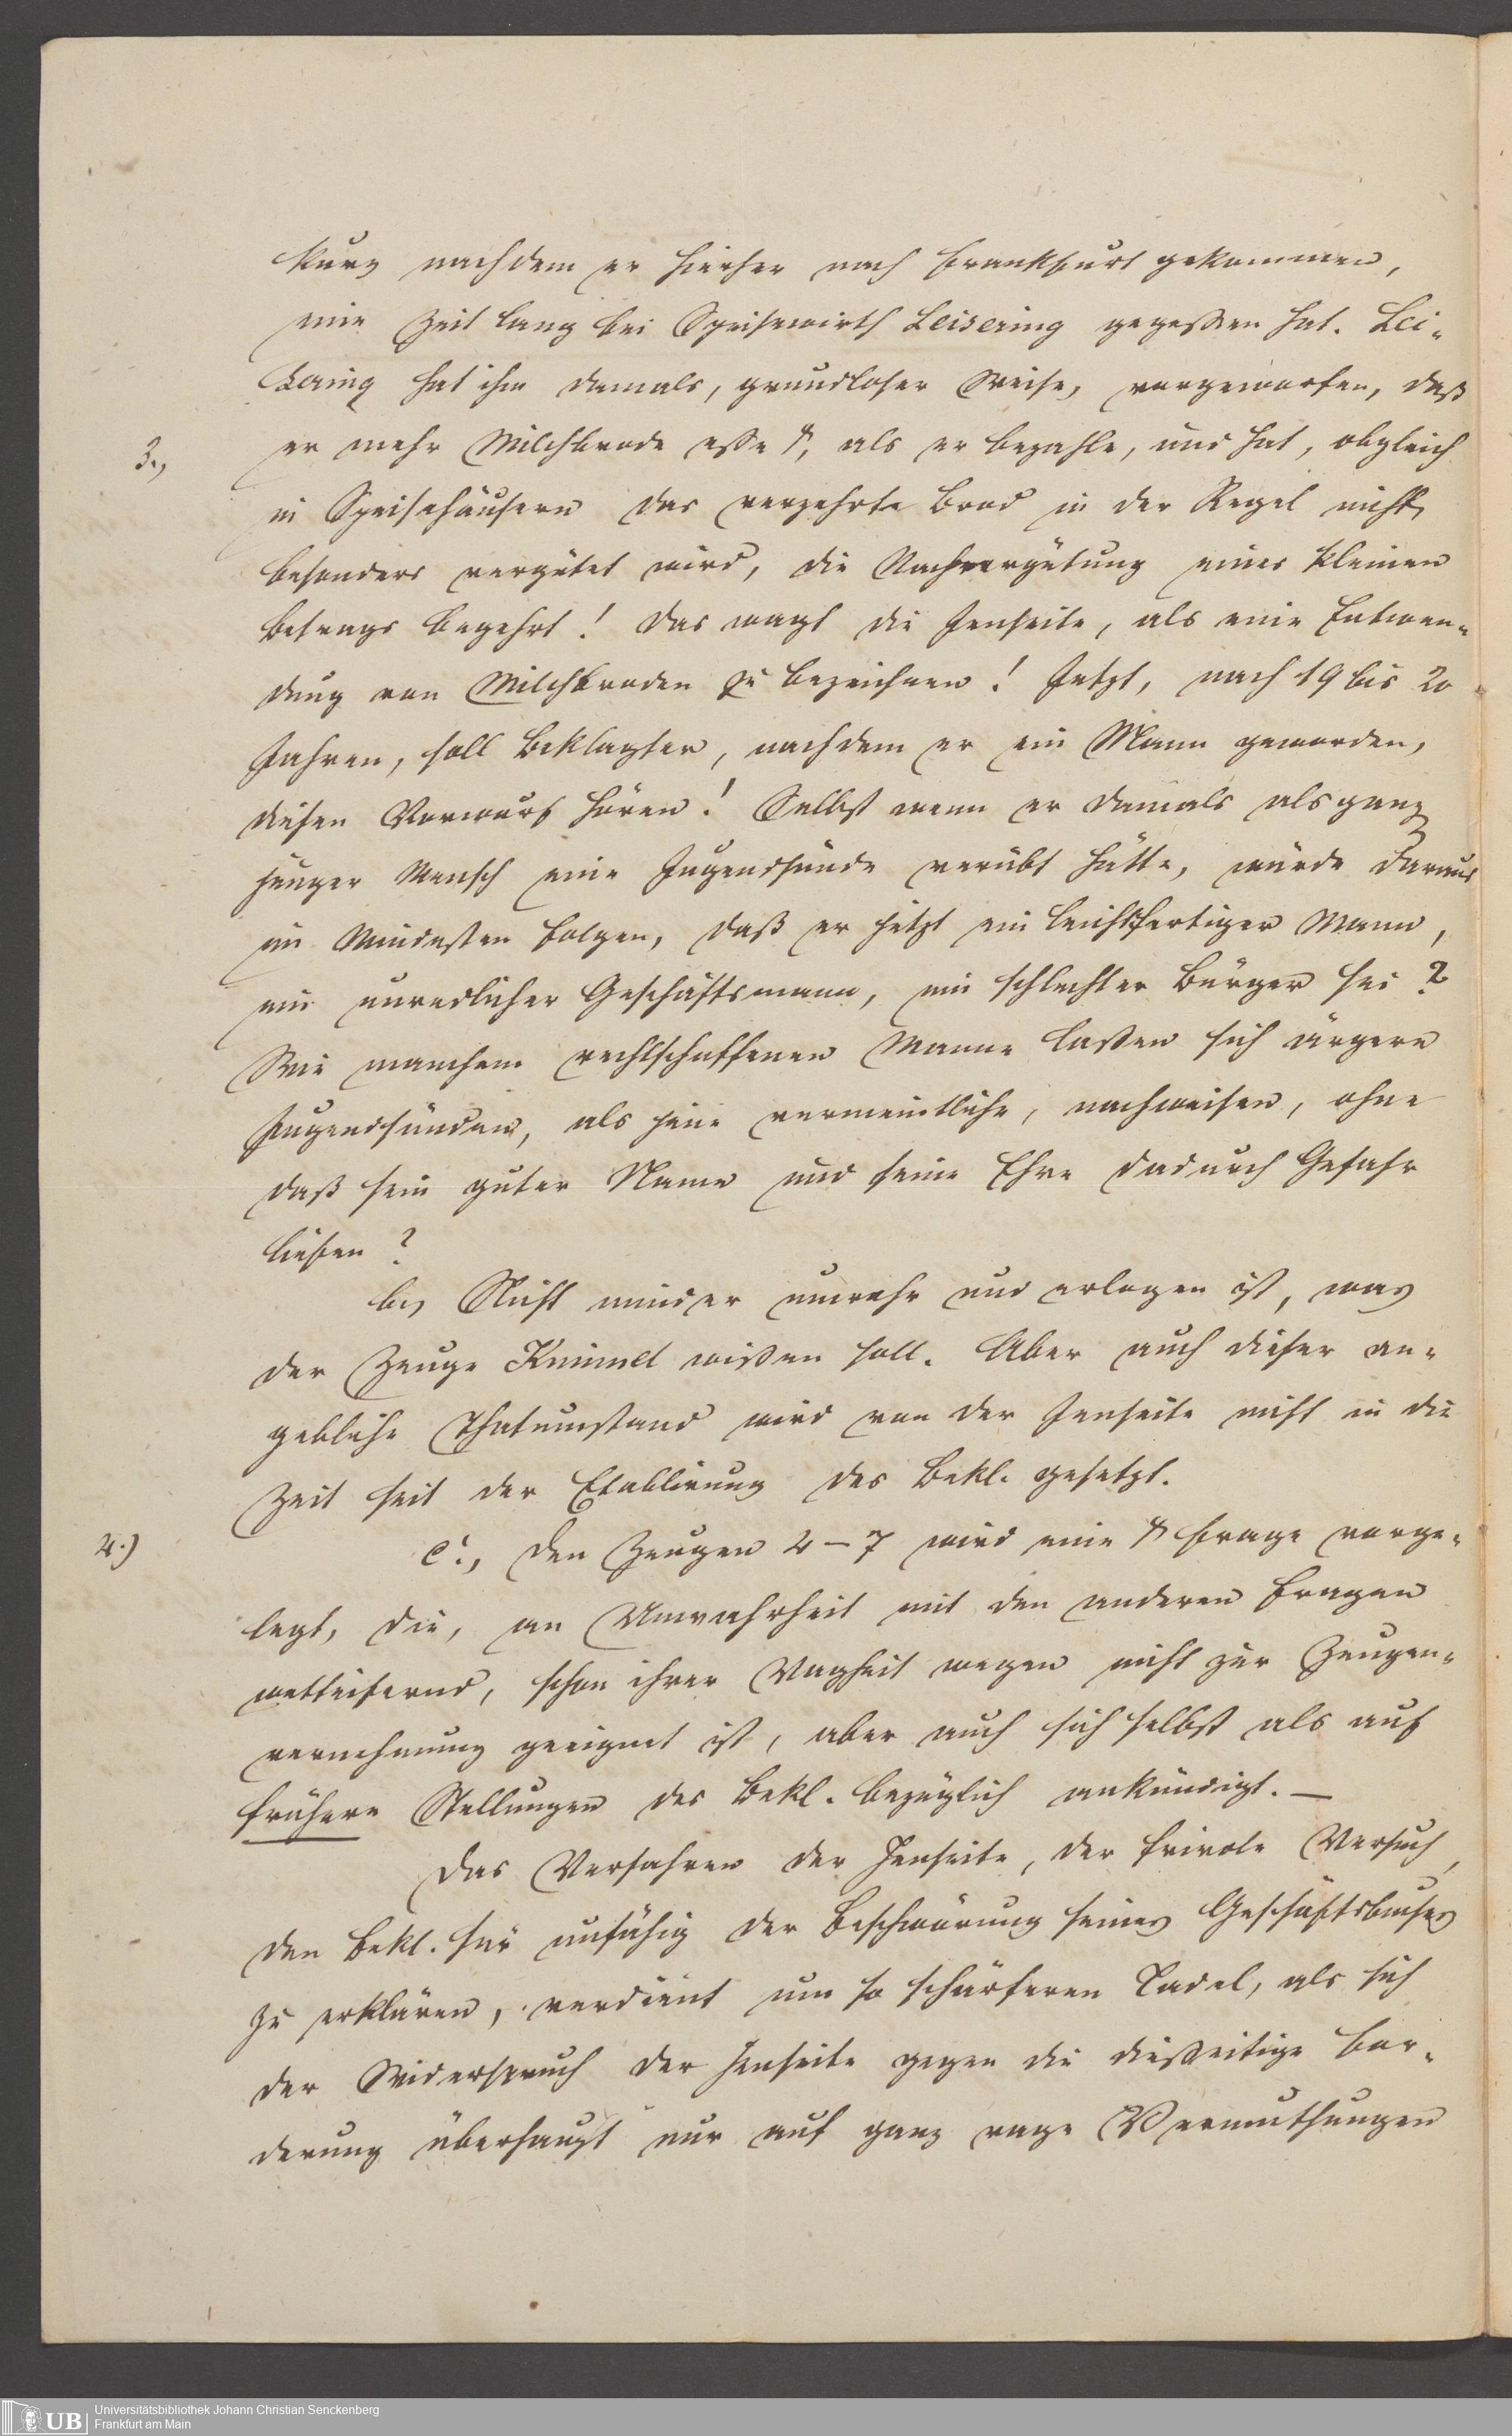 kurz nachdem er hierher nach Frankfurt gekommen,
eine Zeit lang bei Speisewirth Leisering gegessen hat. Lei-
sering hat ihm damals, grundloser Weise, vorgeworfen, daß
3.,
er mehr Milchbrode esse, als er bezahle, und hat, obgleich
in Speisehäusern das verzehrte Brod in der Regel nicht
besonders vergütet wird, die Nachvergütung eines kleinen
Betrags begehrt! Das wagt die Jenseite, als eine Entwen-
dung von Milchbroden zu bezeichnen! Jetzt, nach 19 bis 20
Jahren, soll Beklagter, nachdem er ein Mann geworden,
diesen Vorwurf hören! Selbst wenn er damals als ganz
junger Mensch eine Jugendsünde verübt hätte, würde daraus
im Mindesten folgen, daß er jetzt ein leichtfertiger Mann,
ein unredlicher Geschäftsmann, ein schlechter Bürger sei?
Wie manchem rechtschaffenen Manne lassen sich ärgere
Jugendsünden, als jene vermeintliche, nachweisen, ohne
daß sein guter Name und seine Ehre dadurch Gefahr
liefen?
b., Nicht minder unwahr und erlogen ist, was
der Zeuge Kimmel wissen soll. Aber auch dieser an-
gebliche Thatumstand wird von der Jenseite nicht in die
Zeit seit der Etablirung des Bekl. gesetzt.
4.)
c., Den Zeugen 4-7 wird eine Frage vorge-
legt, die, an Unwahrheit mit den anderen Fragen
wetteifernd, schon ihrer Vagheit wegen nicht zur Zeugen-
vernehmung geeignet ist, aber auch sich selbst als auf
frühere Stellungen des Bekl. bezüglich ankündigt. —
Das Verfahren der Jenseite, der frivole Versuch,
den Bekl. für unfähig der Beschwörung seines Geschäftsbuches
zu erklären, verdient um so schärferen Tadel, als sich
der Widerspruch der Jenseite gegen die diesseitige For-
derung überhaupt nur auf ganz vage Vermuthungen
UB
Universitätsbibliothek Johann Christian Senckenberg
Frankfurt am Main